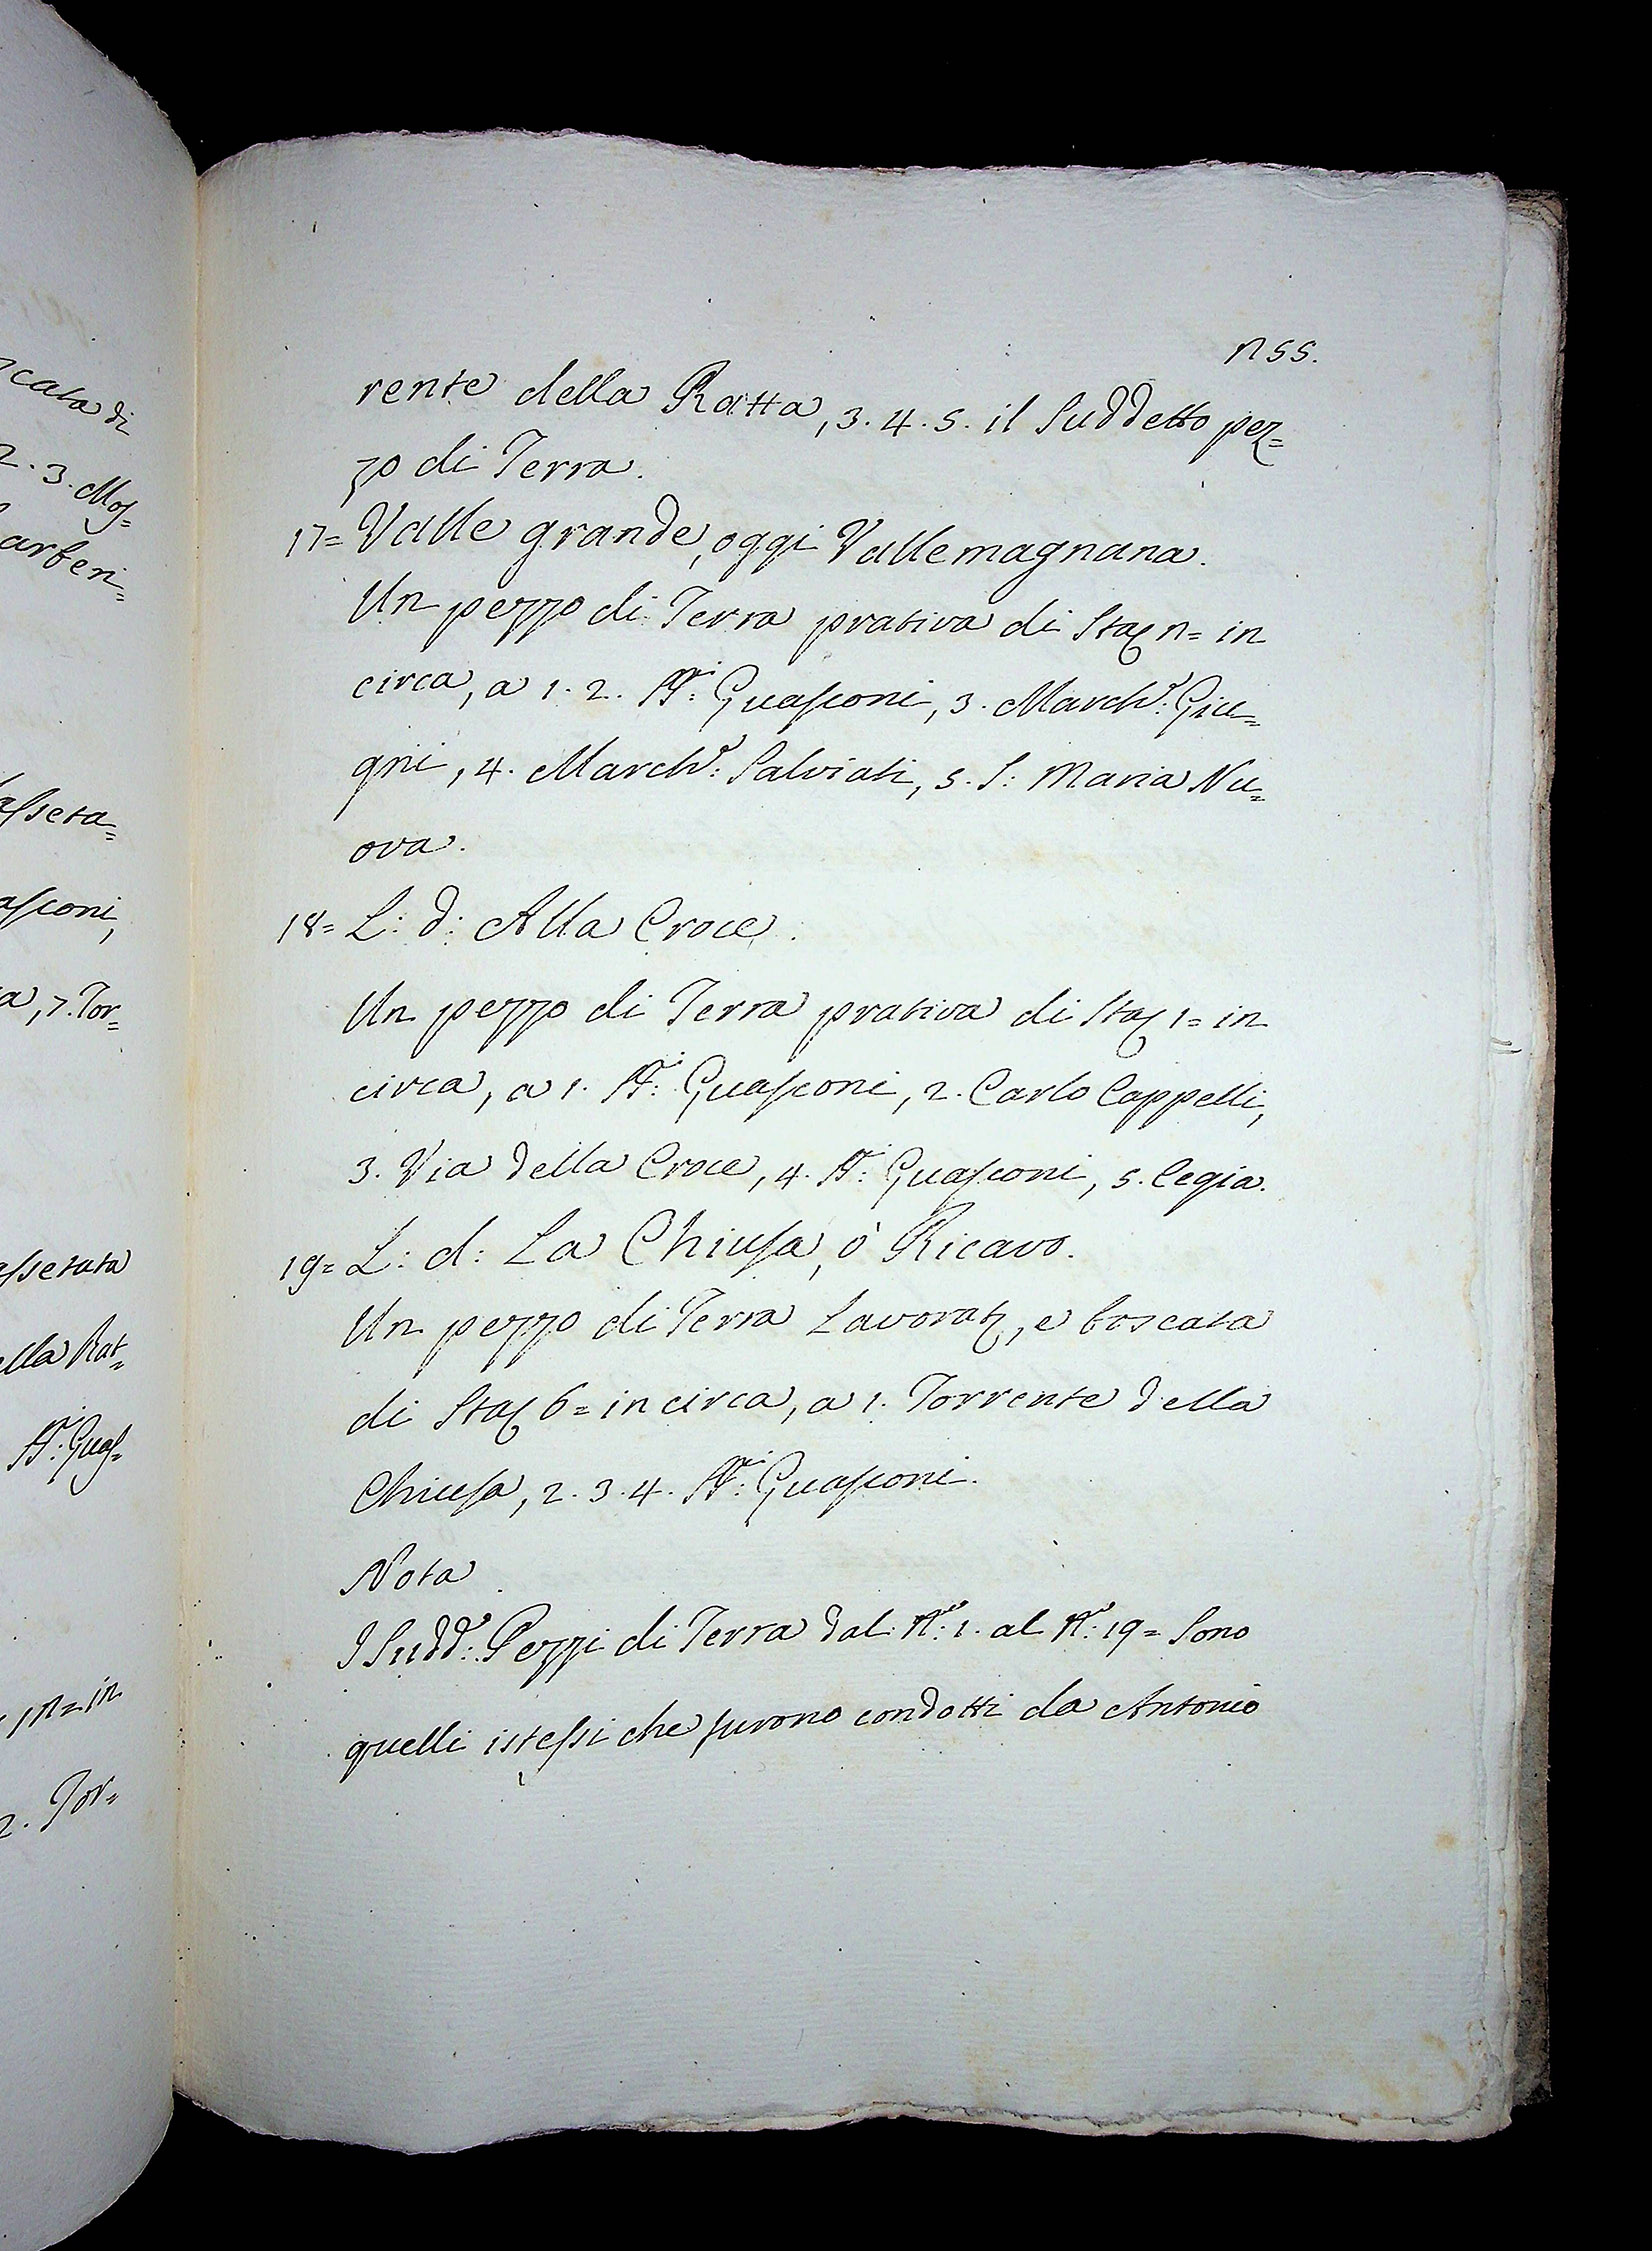 rente della Ratta, 3. 4. 5. il Suddetto pez=
zo di Terra.
17= Valle grande, oggi Vallemagnana.
Un pezzo di Terra prativa di Sta in
circa, a 1. 2. SS:ri Guasconi, 3. March:e Giu=
gni, 4. March:e Salviati, 5. S: Maria Nu=
ova.
18= L: d: Alla Croce.
Un pezzo di Terra prativa di Sta 1= in
circa, a 1. SS:ri Guasconi, 2. Carlo Cappelli,
3. Via della Croce, 4. SS:ri Guasconi, 5. Cegia.
19= L: d: La Chiusa, ò Ricavo.
Un pezzo di Terra Lavorat, e boscata
di Sta 6= in circa, a 1. Torrente della
Chiusa, 2. 3. 4. SS:ri Guasconi.
Nota
I Sudd:i Pezzi di Terra dal N:o 1. al N:o 19= Sono
quelli istessi che furono condotti da Antonio